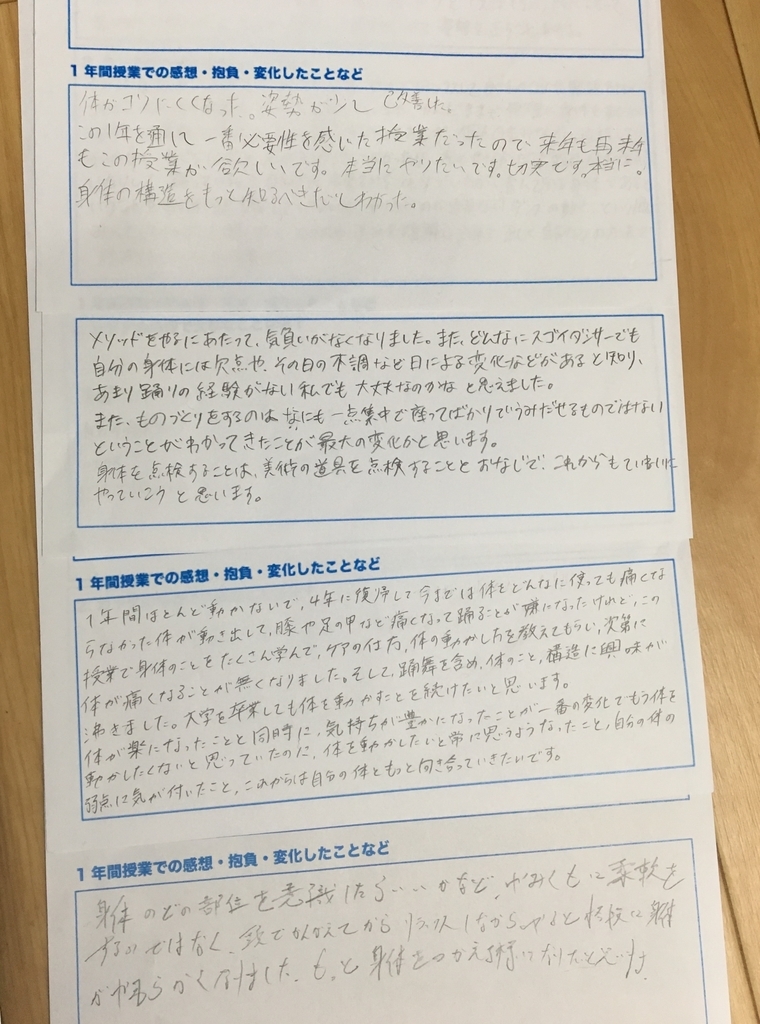 1年間授業での感想・抱負・変化したことなど
体がコリにくくなった。姿勢が少し改善した。
この1年を通じて一番必要性を感じた授業だったので来年も再来年
もこの授業が欲しいです。本当にやりたいです。切実です。本当に。
身体の構造をもっと知るべきだしわかった。
メソッドをやるにあたって、気負いがなくなりました。また、どんなにスゴイダンサーでも
自分の身体には欠点や、その日の不調など日による変化などがあると知り、
あまり踊りの経験がない私でも大丈夫なのかなと思えました。
また、ものづくりをするのはなにも一点集中で座ってばかりでうみだせるものではない
ということがわかってきたことが最大の変化かと思います。
身体を点検することは、美術の道具を点検することとおなじで、これからもていねいに
やっていこうと思います。
1年間授業での感想・抱負・変化したことなど
1年間ほとんど動かないで、4年に復帰して今までは体をどんなに使っても痛くな
らなかった体が動き出して、膝や足の甲など痛くなって踊ることが嫌になったけれど、この
授業で身体のことをたくさん学んで、ケアの仕方、体の動かし方を教えてもらい、次第に
体が痛くなることが無くなりました。そして、踊舞を含め、体のこと、構造に興味が
沸きました。大学を卒業しても体を動かすことを続けたいと思います。
体が楽になったことと同時に、気持ちが豊かになったことが一番の変化でもう体を
動かしたくないと思っていたのに、体を動かしたいと常に思うようなったこと、自分の体の
弱点に気が付いたこと、これからは自分の体ともっと向き合っていきたいです。
1年間授業での感想・抱負・変化したことなど
身体のどの部位を意識したらいいかなど、やみくもに柔軟を
するのではなく、頭でかんがえてから リラックスしながらやると 身体
がやわらかくなりました。もっと身体をつかえる様になりたいと